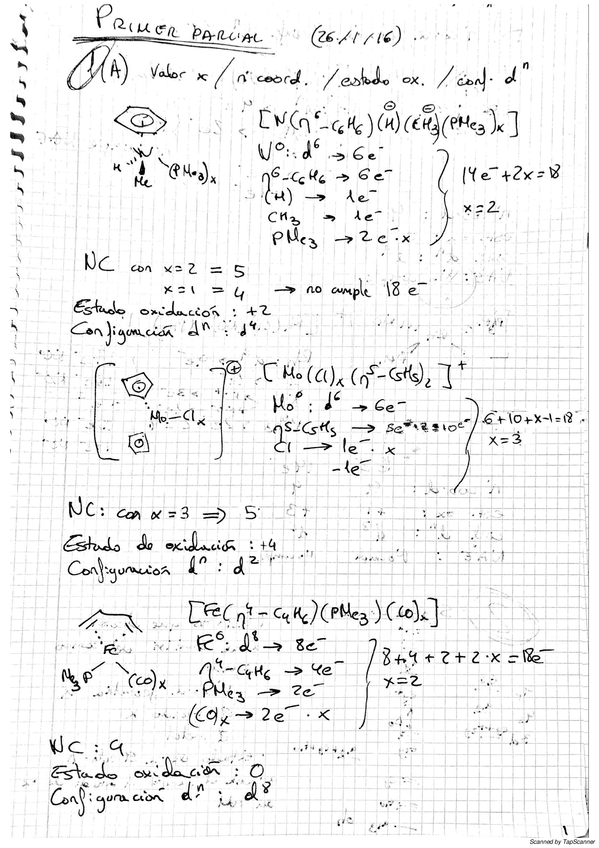 PRIMER PARCIAL (26/1/16)
1 (A) Valor x / nº coord. / estado ox. / conf. dⁿ
[W(η⁶-C₆H₆)(H)(CH₃)(PMe₃)ₓ]
⊖ ⊖
W⁰: d⁶ → 6e⁻
η⁶-C₆H₆ → 6e⁻
(H) → 1e⁻
CH₃ → 1e⁻
PMe₃ → 2e⁻·x
14e⁻+2x=18
x=2
W
H
Me
(PMe₃)ₓ
NC con x=2 = 5
x=1 = 4 → no cumple 18 e⁻
Estado oxidación : +2
Configuración dⁿ: d⁴
[Mo(Cl)ₓ(η⁵-C₅H₅)₂]⁺
⊕
Mo-Clₓ
Mo⁰: d⁶ → 6e⁻
η⁵-C₅H₅ → 5e⁻·2=10e⁻
Cl → 1e⁻·x
-1e⁻
6+10+x-1=18
x=3
NC: con x=3 ⇒ 5
Estado de oxidación : +4
Configuración dⁿ: d²
[Fe(η⁴-C₄H₆)(PMe₃)(CO)ₓ]
Fe
Me₃P
(CO)ₓ
Fe⁰: d⁸ → 8e⁻
η⁴-C₄H₆ → 4e⁻
PMe₃ → 2e⁻
(CO)ₓ → 2e⁻·x
8+4+2+2·x=18e⁻
x=2
NC: 4
Estado oxidación : 0
Configuración dⁿ: d⁸
1
Scanned by TapScanner